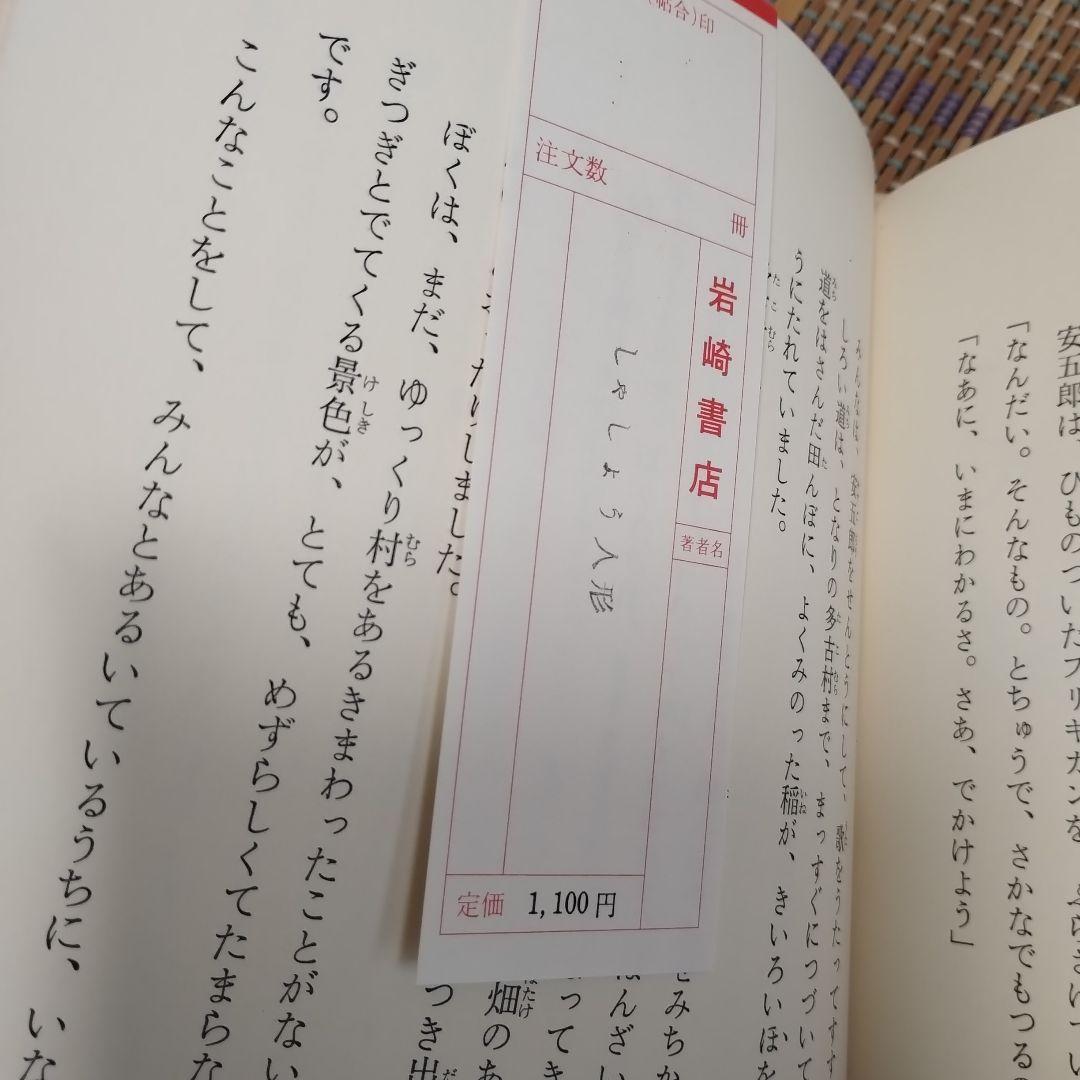 (帖合)印
注文数
冊
岩崎書店
著者名
しゃしょう人形
定価 1,100円
安五郎は、ひものついたブリキカンを
「なんだい。そんなもの。とちゅうで、さかなでもつるの
「なあに、いまにわかるさ。さあ、でかけよう」
みんなは、安五郎をせんとうにして、歌をうたってすす
しろい道は、となりの多古村まで、まっすぐにつづいて
道をはさんだ田んぼに、よくみのった稲が、きいろいほを
うにたれていました。
たこむら
畑のあ
つき出
ました。
ぼくは、まだ、ゆっくり村をあるきまわったことがない
ぎつぎとでてくる景色が、とても、めずらしくてたまらな
です。
こんなことをして、みんなとあるいているうちに、いな